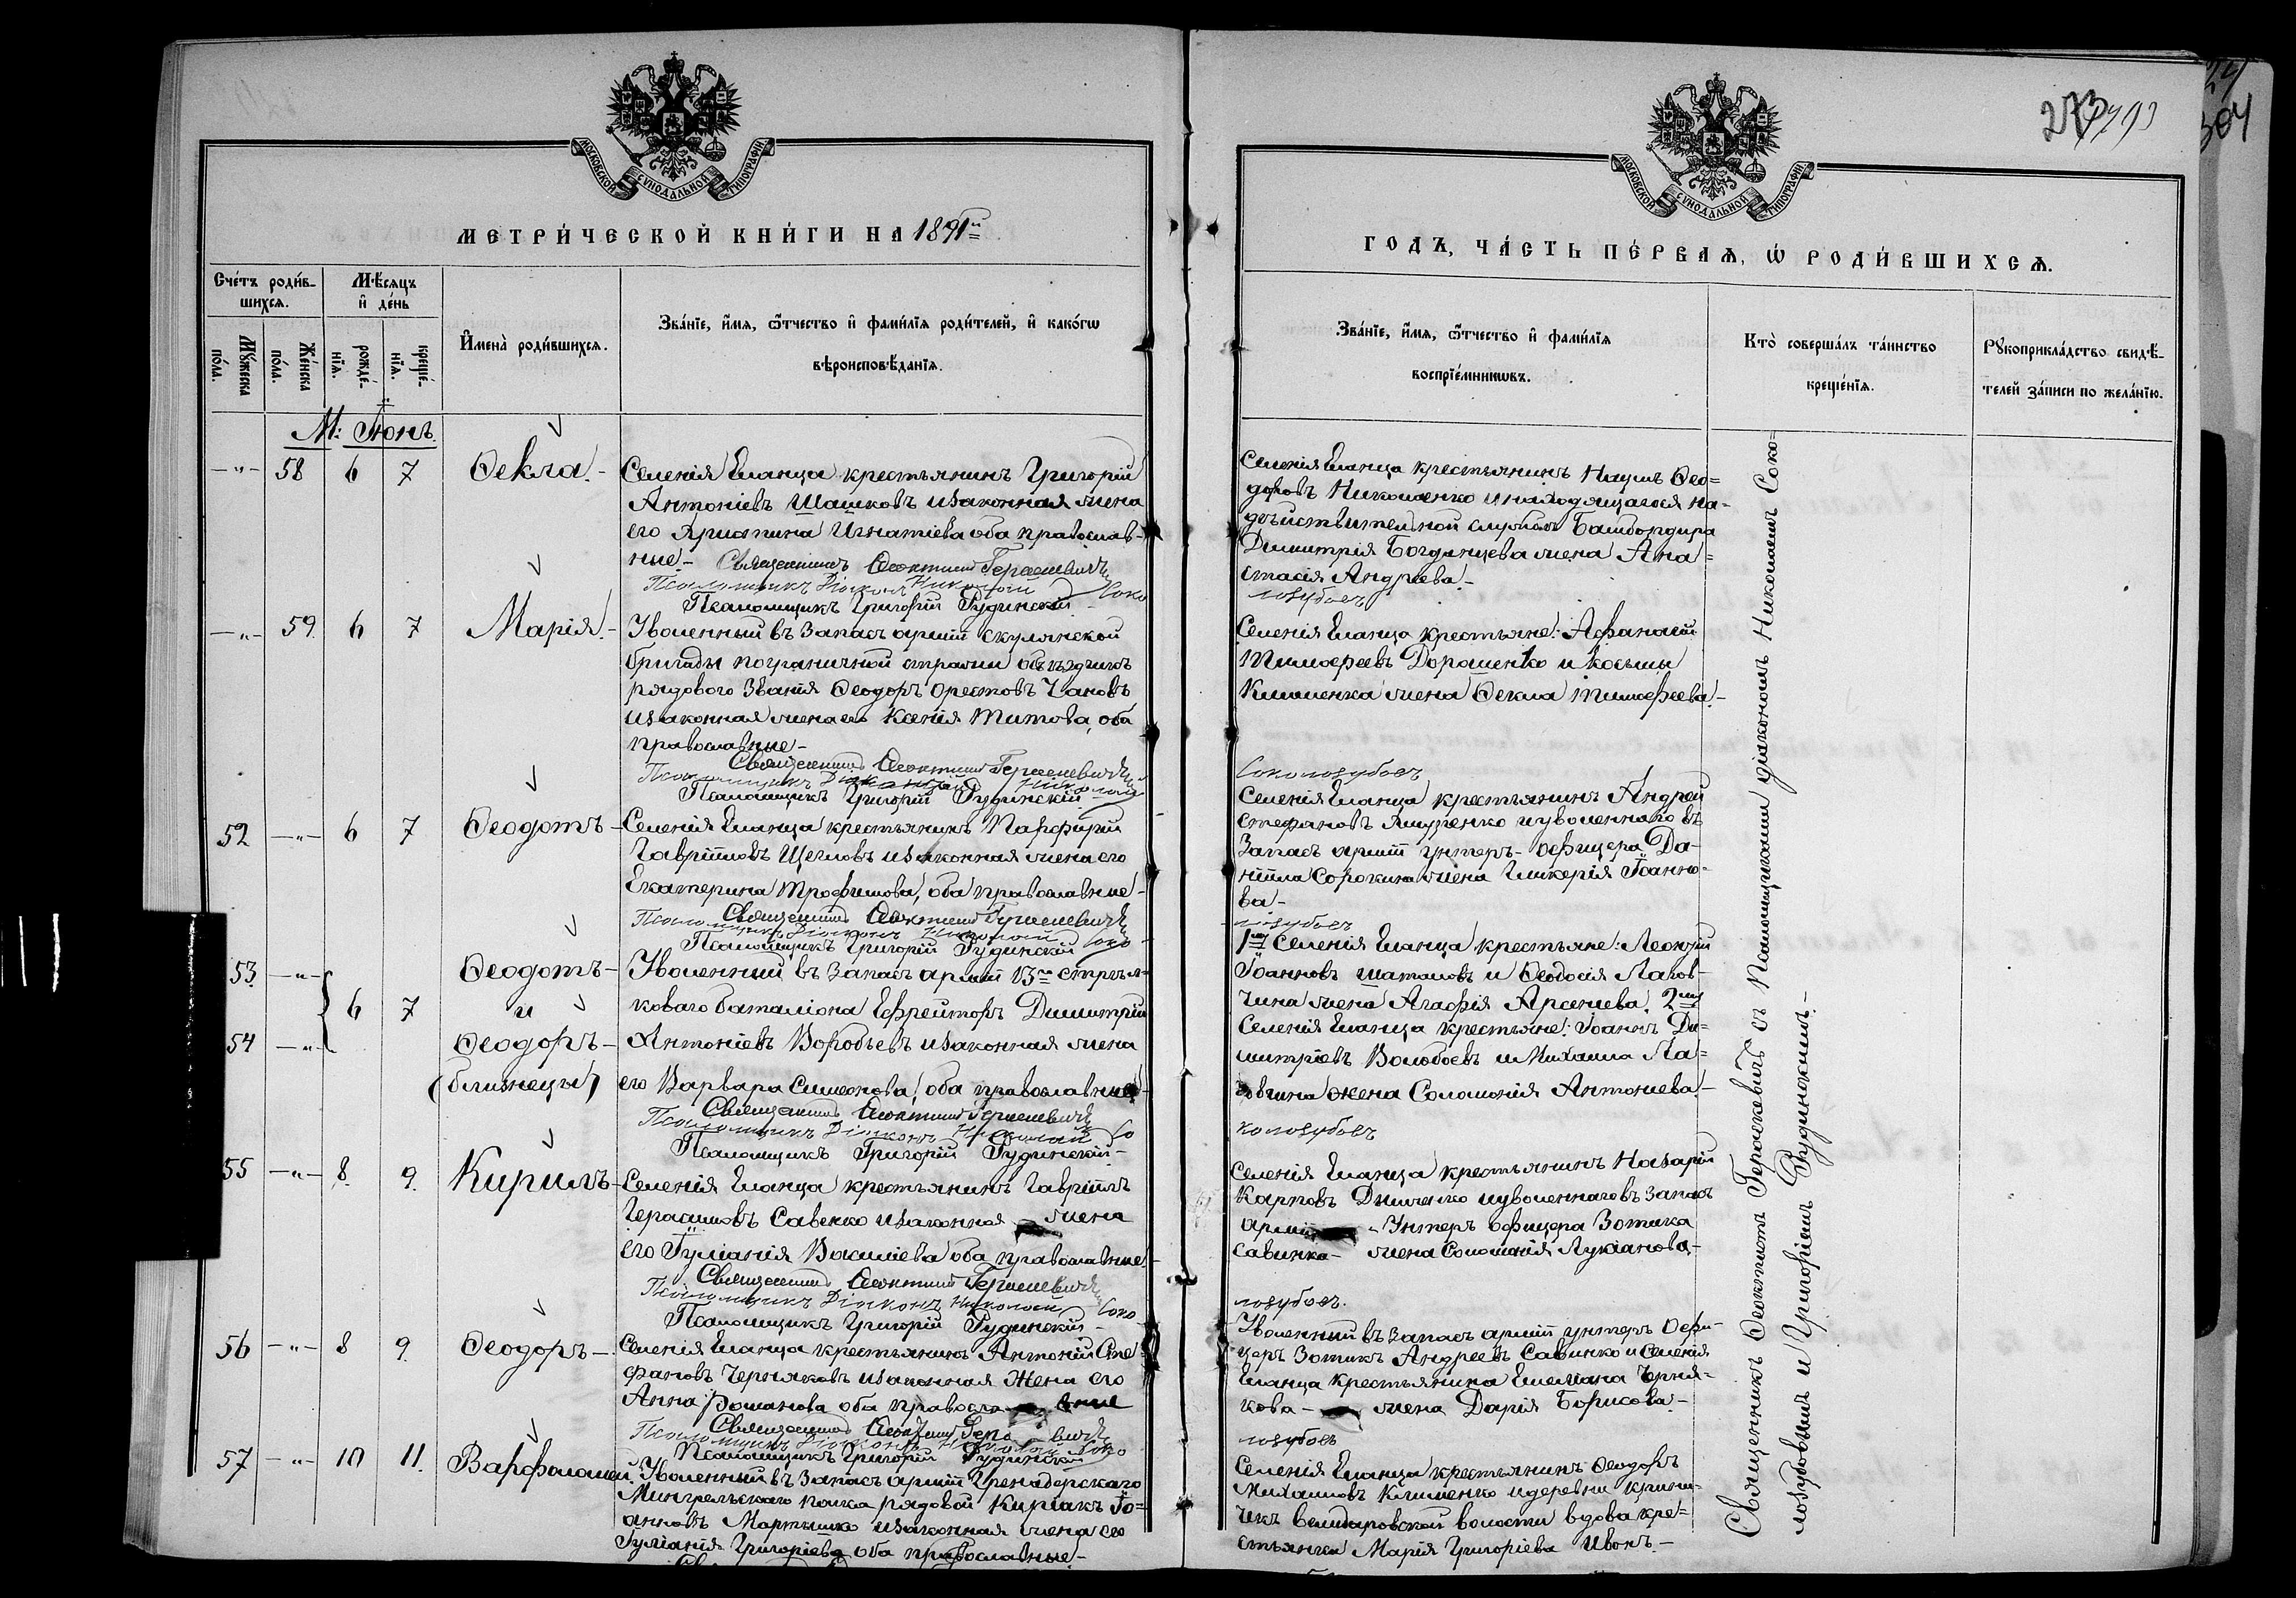 МОСКОВСКОЙ СѴНОДАЛЬНОЙ ТИПОГРАФІИ
МЕТРИ́ЧЕСКОЙ КНИ́ГИ НА 1891й
Сче́тъ роди́в-
шихся.
Мѣсяцъ
и҆ де́нь
Мꙋ́жеска
по́ла.
Же́нска
по́ла.
рожде́-
нїя.
креще́-
нїя.
И҆мена̀ роди́вшихся.
Зва́нїе, и҆́мя, ѻ҆́тчество и҆ фами́лїя роди́телей, и҆ како́гѡ
вѣроисповѣ́данїя.
М: Іюнь.
—"— 58 6 7 Ѳекла.- Селенія Еланца крестьянинъ Григорій
Антоніевъ Шашковъ и законная жена
его Христина Игнатіева оба православ-
ные.- Священникъ Ѳеоктистъ Гераскевичъ
Псаломщикъ Діаконъ Николай Соко
Псаломщикъ Григорій Рудинскій
—"— 59. 6 7 Марія.- Уволенный въ запасъ арміи скулянской
бригады пограничной стражи объѣздчикъ
рядового званія Ѳеодоръ Орестовъ Чановъ
и законная жена его Ксенія Титова, оба
православные-
Священникъ Ѳеоктистъ Гераскевичъ
Псаломщикъ Діаконъ Николай
Псаломщикъ Григорій Рудинскій
52 —"— 6 7 Ѳеодотъ- Селенія Еланца крестьянинъ Парфирій
Гавріиловъ Щегловъ и законная жена его
Екатерина Трофимова, оба православные-
Священникъ Ѳеоктистъ Гераскевичъ
Псаломщикъ Діаконъ Николай Соко
Псаломщикъ Григорій Рудинскій
53. —"— Ѳеодотъ- Уволенный въ запасъ арміи 13го стрѣл-
6 7 и коваго баталіона Ефрейторъ Димитрій
54 —"— Ѳеодоръ- Антоніевъ Воробьевъ и законная жена
(близнецы) его Варвара Симеонова, оба православные-
Священникъ Ѳеоктистъ Гераскевичъ
Псаломщикъ Діаконъ Николай Со
Псаломщикъ Григорій Рудинскій-
55 —"— 8. 9. Кирилъ- Селенія Еланца крестьянинъ Гавріилъ
Герасимовъ Савенко и законная жена
его Іуліанія Василіева оба православные.
Священникъ Ѳеоктистъ Гераскевичъ
Псаломщикъ Діаконъ Николай Соко
Псаломщикъ Григорій Рудинскій-
56 —"— 8 9. Ѳеодоръ- Селенія Еланца крестьянинъ Антоній Сте-
фановъ Черняковъ и законная жена его
Анна Романова оба православные
Священникъ
Псаломщикъ Діаконъ Николай Соко
Псаломщикъ Григорій Рудинскій
57 —"— 10 11. Варфоломей. Уволенный въ запасъ арміи Гренадерскаго
Мингрельскаго полка рядовой Киріакъ Іо=
анновъ Мартышко и законная жена его
Іуліанія Григоріева оба православные-
273
304
МОСКОВСКОЙ СѴНОДАЛЬНОЙ ТИПОГРАФІИ
ГОДЪ, ЧА́СТЬ ПЕ́РВАѦ, Ѡ҆ РОДИ́ВШИХСѦ.
Зва́нїе, и҆́мя, ѻ҆́тчество и҆ фами́лїя
воспрїе́мникѡвъ.
Кто̀ соверша́лъ та́инство
креще́нїя.
Рꙋкоприкла́дство свидѣ́-
телей за́писи по жела́нїю.
Селенія Еланца крестьянинъ Наумъ Ѳео=
доровъ Николаенко и находящагося на=
дѣйствительной службѣ Бамбордира
Димитрія Богданцева жена Ана=
стасія Андреева-
лозубовъ
Селенія Еланца крестьяне: Афанасій
Тимофеевъ Дорошенко и Космы
Клименка жена Ѳекла Тимофеева.-
Соколозубовъ
Селенія Еланца крестьянинъ Андрей
Стефановъ Ящузенко и уволеннаго въ
запасъ арміи унтеръ-офицера Да-
ніила Сорокина жена Гликерія Іоанно-
ва-
лозубовъ
1хъ Селенія Еланца крестьяне: Леонтій
Іоанновъ Шаталовъ и Ѳеодосія Лагов-
чина жена Агафія Арсеніева. 2хъ
Селенія Еланца крестьяне: Іоаннъ Ди=
митріевъ Волобоевъ и Михаила Ла=
овчина жена Соломонія Антоніева.-
колозубовъ
Селенія Еланца крестьянинъ Назарій
Карповъ Димченко и уволеннаго въ запасъ
арміи - Унтеръ офицера Зотика
Савинка- жена Соломонія Лукіанова-
лозубовъ.
Уволенный въ запасъ арміи унтеръ офи-
церъ Зотикъ Андреевъ Савинко и селенія
Еланца крестьянина Емеліана Черня-
кова- жена Дарія Борисова-
лозубовъ
Селенія Еланца крестьянинъ Ѳеодоръ
Михаиловъ Клименко и деревни Крини-
чекъ волости вдова кре=
стьянка Марія Григоріева Ивонъ-
Священникъ Ѳеоктистъ Гераскевичъ съ Псаломщиками діакономъ Николаемъ Соко=
лозубовымъ и Григоріемъ Рудинскимъ.-